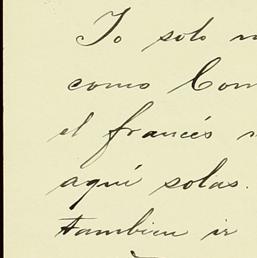 Yo solo
como Com
el francés
aquí solas.
tambien ir